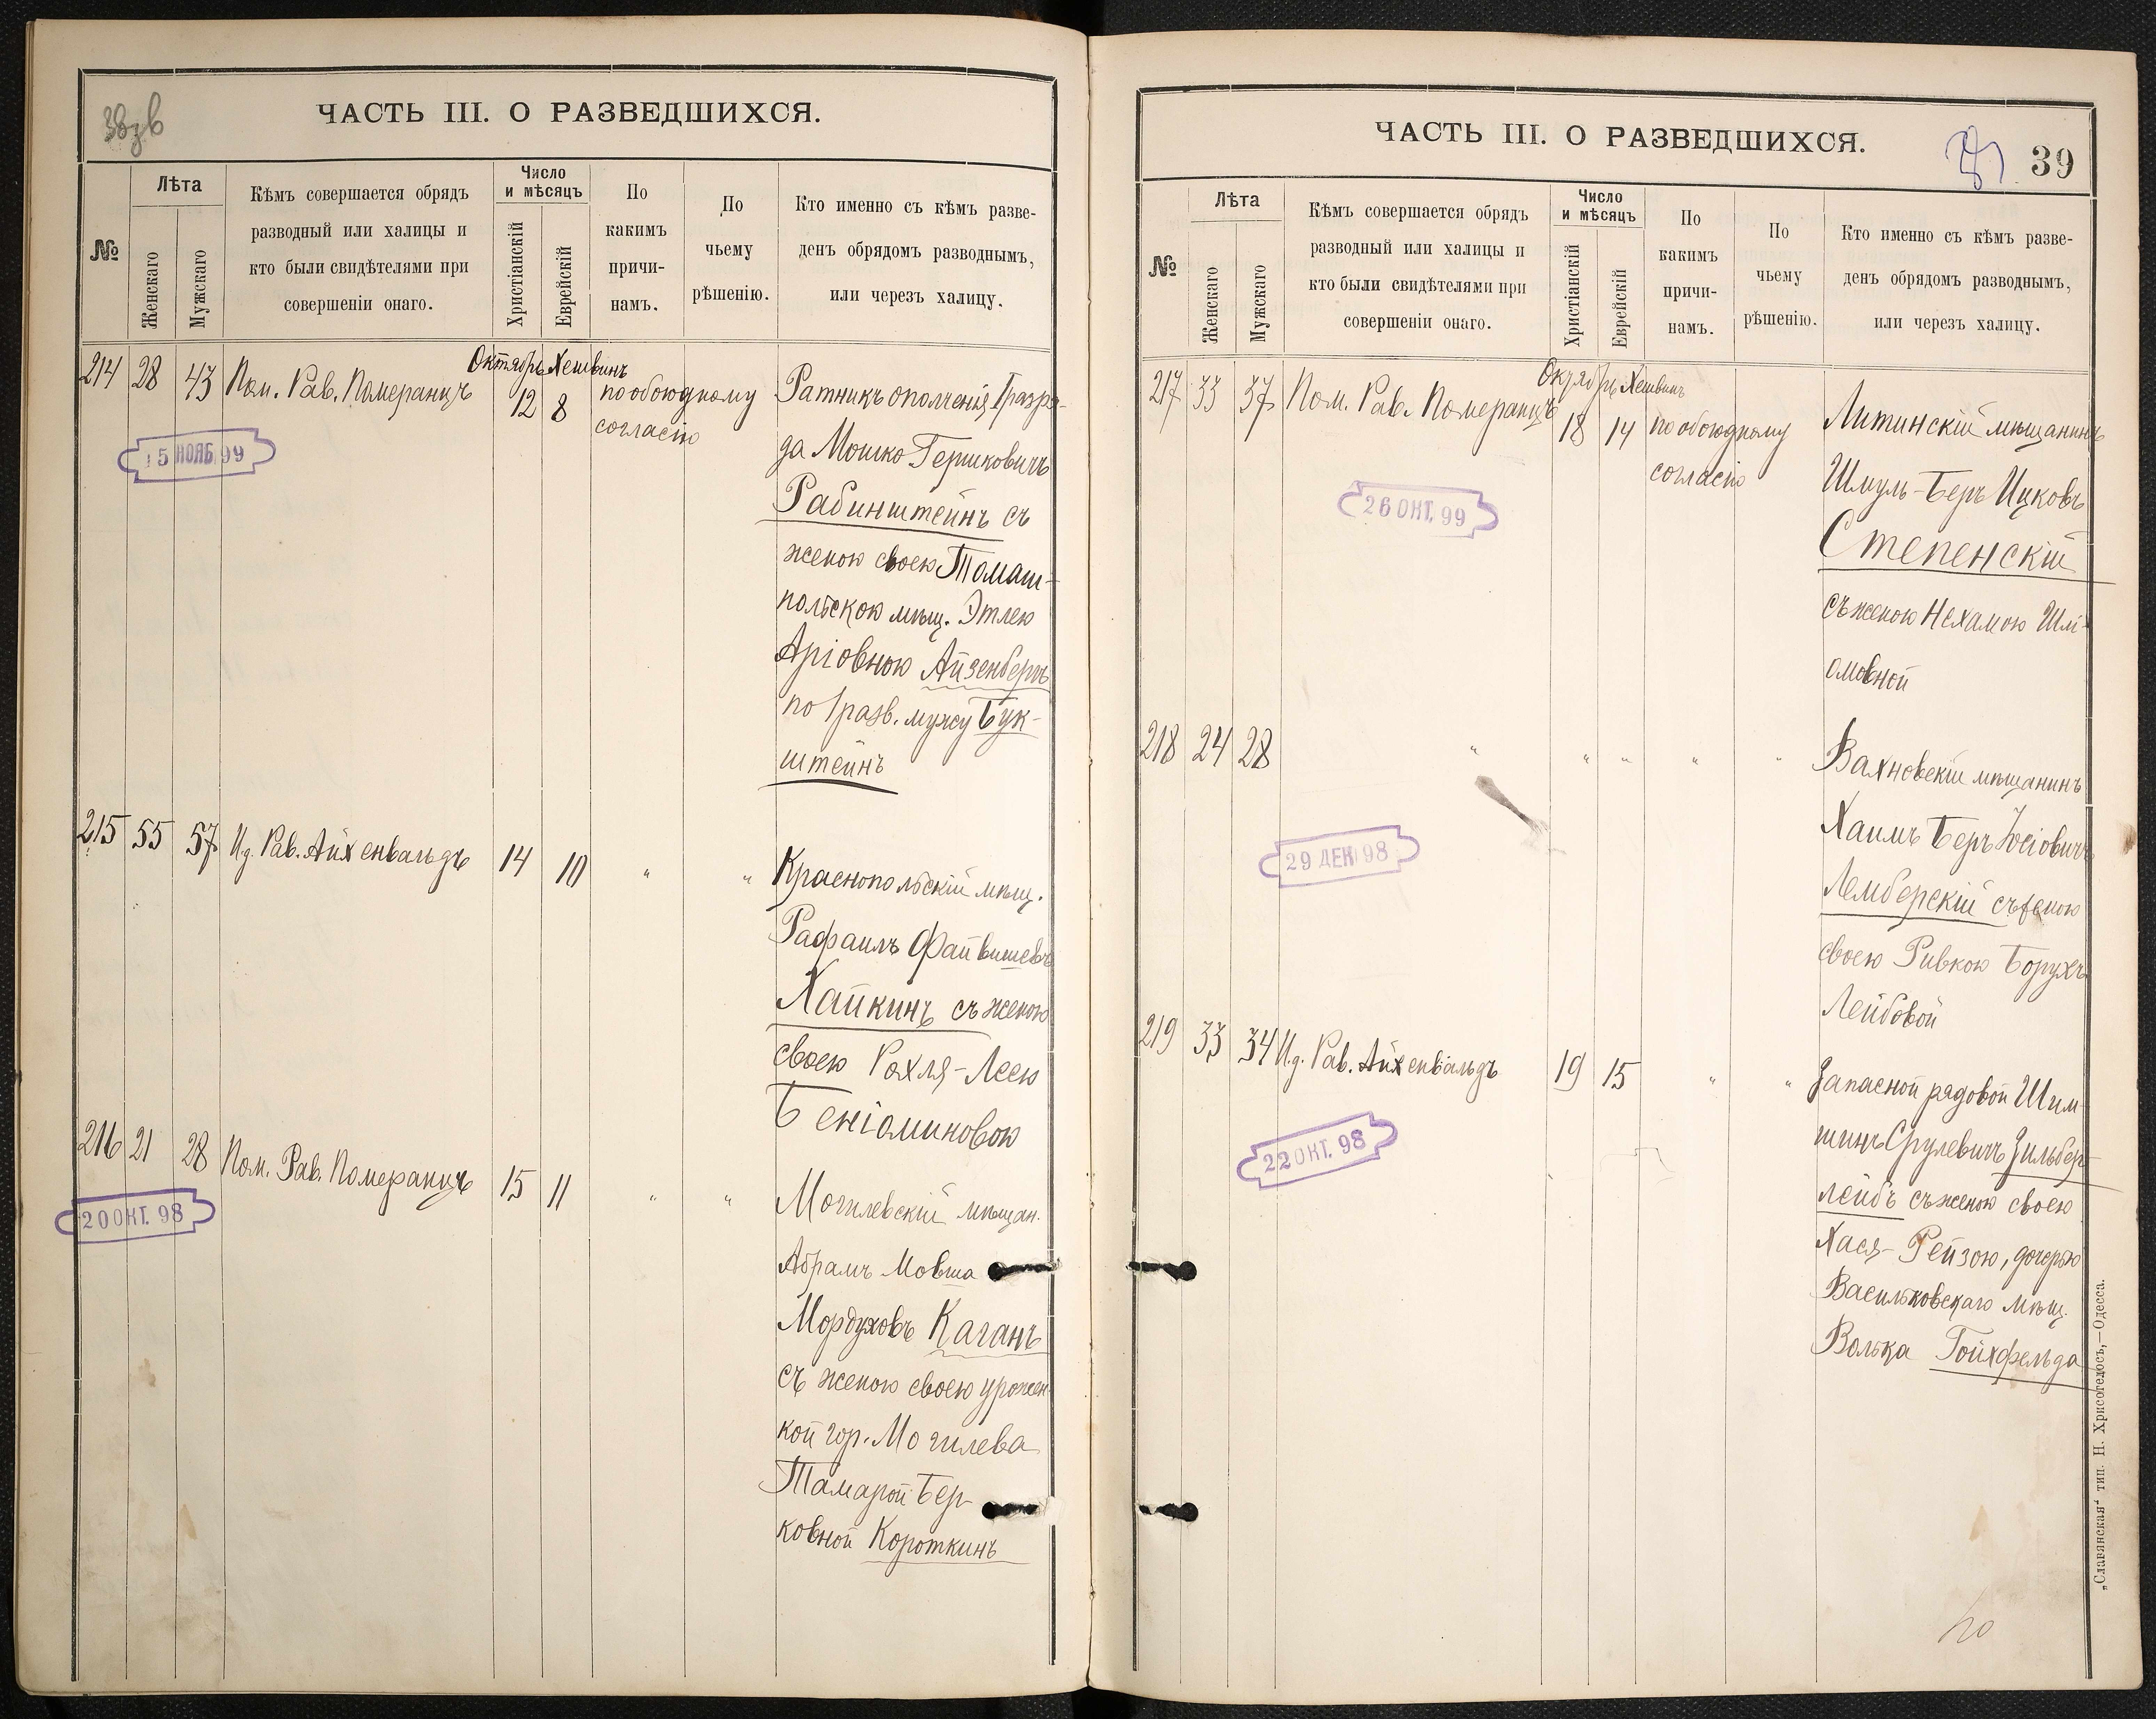 38зв
ЧАСТЬ III. О РАЗВЕДШИХСЯ.
№
Лѣта
Женскаго
Мужскаго
Кѣмъ совершается обрядъ
разводный или халицы и
кто были свидѣтелями при
совершеніи онаго.
Число
и мѣсяцъ
Христіанскій
Еврейскій
По
какимъ
причи-
намъ.
По
чьему
рѣшенію.
Кто именно съ кѣмъ разве-
денъ обрядомъ разводнымъ,
или черезъ халицу.
Октябрь Хешвинъ
214 28 43 Пом. Рав. Померанцъ 12 8 по обоюдному
согласію
15 НОЯБ. 99
Ратникъ ополченія I разря-
да Мошко Гершковичъ
Рабинштейнъ съ
женою своею Томаш-
польской мѣщ. Этлею
Аріовною Айзенбергъ
по 1 разв. мужу Бук-
штейнъ
215 55 57 И.д. Рав. Айхенвальдъ 14 10 " "
Краснопольскій мѣщ.
Рафаилъ Файвишевъ
Хайкинъ съ женою
своею Рохля-Леею
Беніоминовою
216 21 28 Пом. Рав. Померанцъ 15 11 " "
20 ОКТ. 98
Могилевскій мѣщан.
Абрамъ Мовша
Мордуховъ Каганъ
съ женою своею урожен
кой гор. Могилева
Тамарой Бер-
ковной Короткинъ
ЧАСТЬ III. О РАЗВЕДШИХСЯ.
39
№
Лѣта
Женскаго
Мужскаго
Кѣмъ совершается обрядъ
разводный или халицы и
кто были свидѣтелями при
совершеніи онаго.
Число
и мѣсяцъ
Христіанскій
Еврейскій
По
какимъ
причи-
намъ.
По
чьему
рѣшенію.
Кто именно съ кѣмъ разве-
денъ обрядомъ разводнымъ,
или черезъ халицу.
Октябрь Хешвинъ
217 33 37 Пом. Рав. Померанцъ 18 14 по обоюдному
согласію
26 ОКТ. 99
Литинскій мѣщанинъ
Шмуль-Беръ Ицковъ
Степенскій
съ женою Нехамою Шлі-
омовной
218 24 28 " " " " "
29 ДЕК 98
Вахновскій мѣщанинъ
Хаимъ Беръ Іосіовичъ
Лемберскій съ женою
своею Ривкою Борухъ
Лейбовой
219 33 34 И.д. Рав. Айхенвальдъ 19 15 " "
22 ОКТ. 98
Запасной рядовой Шим-
шинъ Срулевичъ Зильбер-
лейбъ съ женою своею
Хася-Рейзою, дочерью
Васильковскаго мѣщ.
Волька Гойхфельда
„Славянская“ тип. Н. Хрисогелосъ,—Одесса.